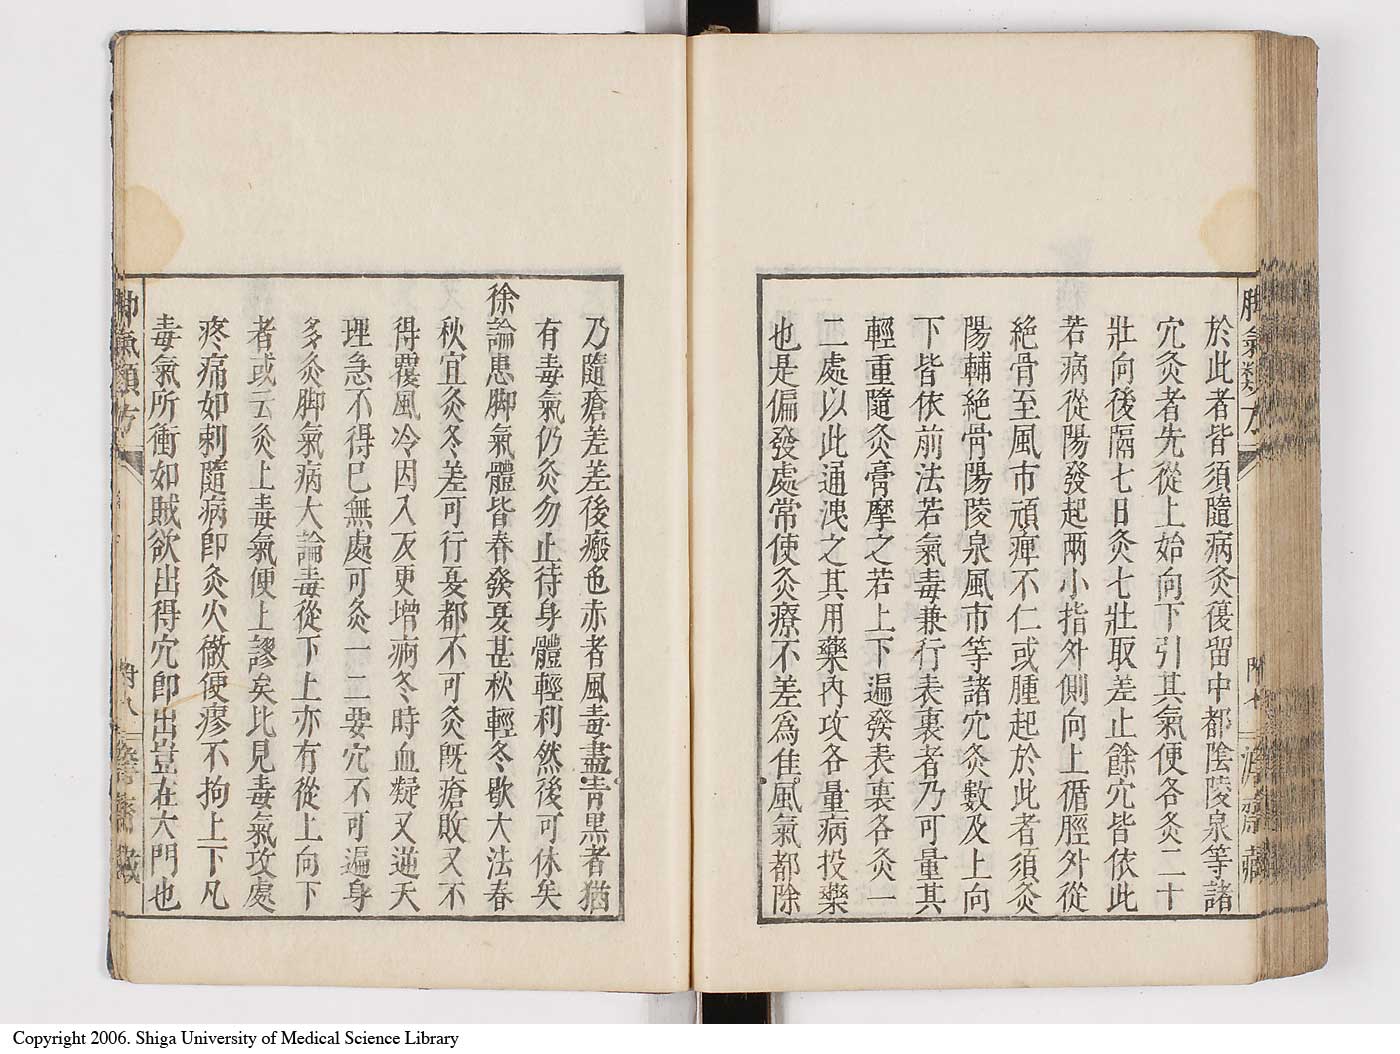 於此者皆須隨病灸復留中都陰陵泉等諸
穴灸者先從上始向下引其氣便各灸二十
壯向後隔七日灸七壯取差止餘穴皆依此
若病從陽發起兩小指外側向上循脛外從
絕骨至風市頑痺不仁或腫起於此者須灸
陽輔絕骨陽陵泉風市等諸穴灸數及上向
下皆依前法若氣毒兼行表裏者乃可量其
輕重隨灸膏摩之若上下遍發表裏各灸一
二處以此通洩之其用藥內攻各量病投藥
也是偏發處常使灸療不差為佳風氣都除
乃隨瘡差差後瘢色赤者風毒盡青黑者猶
有毒氣仍灸勿止待身體輕利然後可休矣
徐論患脚氣體皆春發夏甚秋輕冬歇大法春
秋宜灸冬差可行夏都不可灸既瘡敗又不
得覆風冷因入反更增病冬時血凝又逆天
理急不得已無處可灸一二要穴不可遍身
多灸脚氣病大論毒從下上亦有從上向下
者或云灸上毒氣便上謬矣比見毒氣攻處
疼痛如刺隨病即灸火徹便瘳不拘上下凡
毒氣所衝如賊欲出得穴即出豈在大門也
脚氣類方